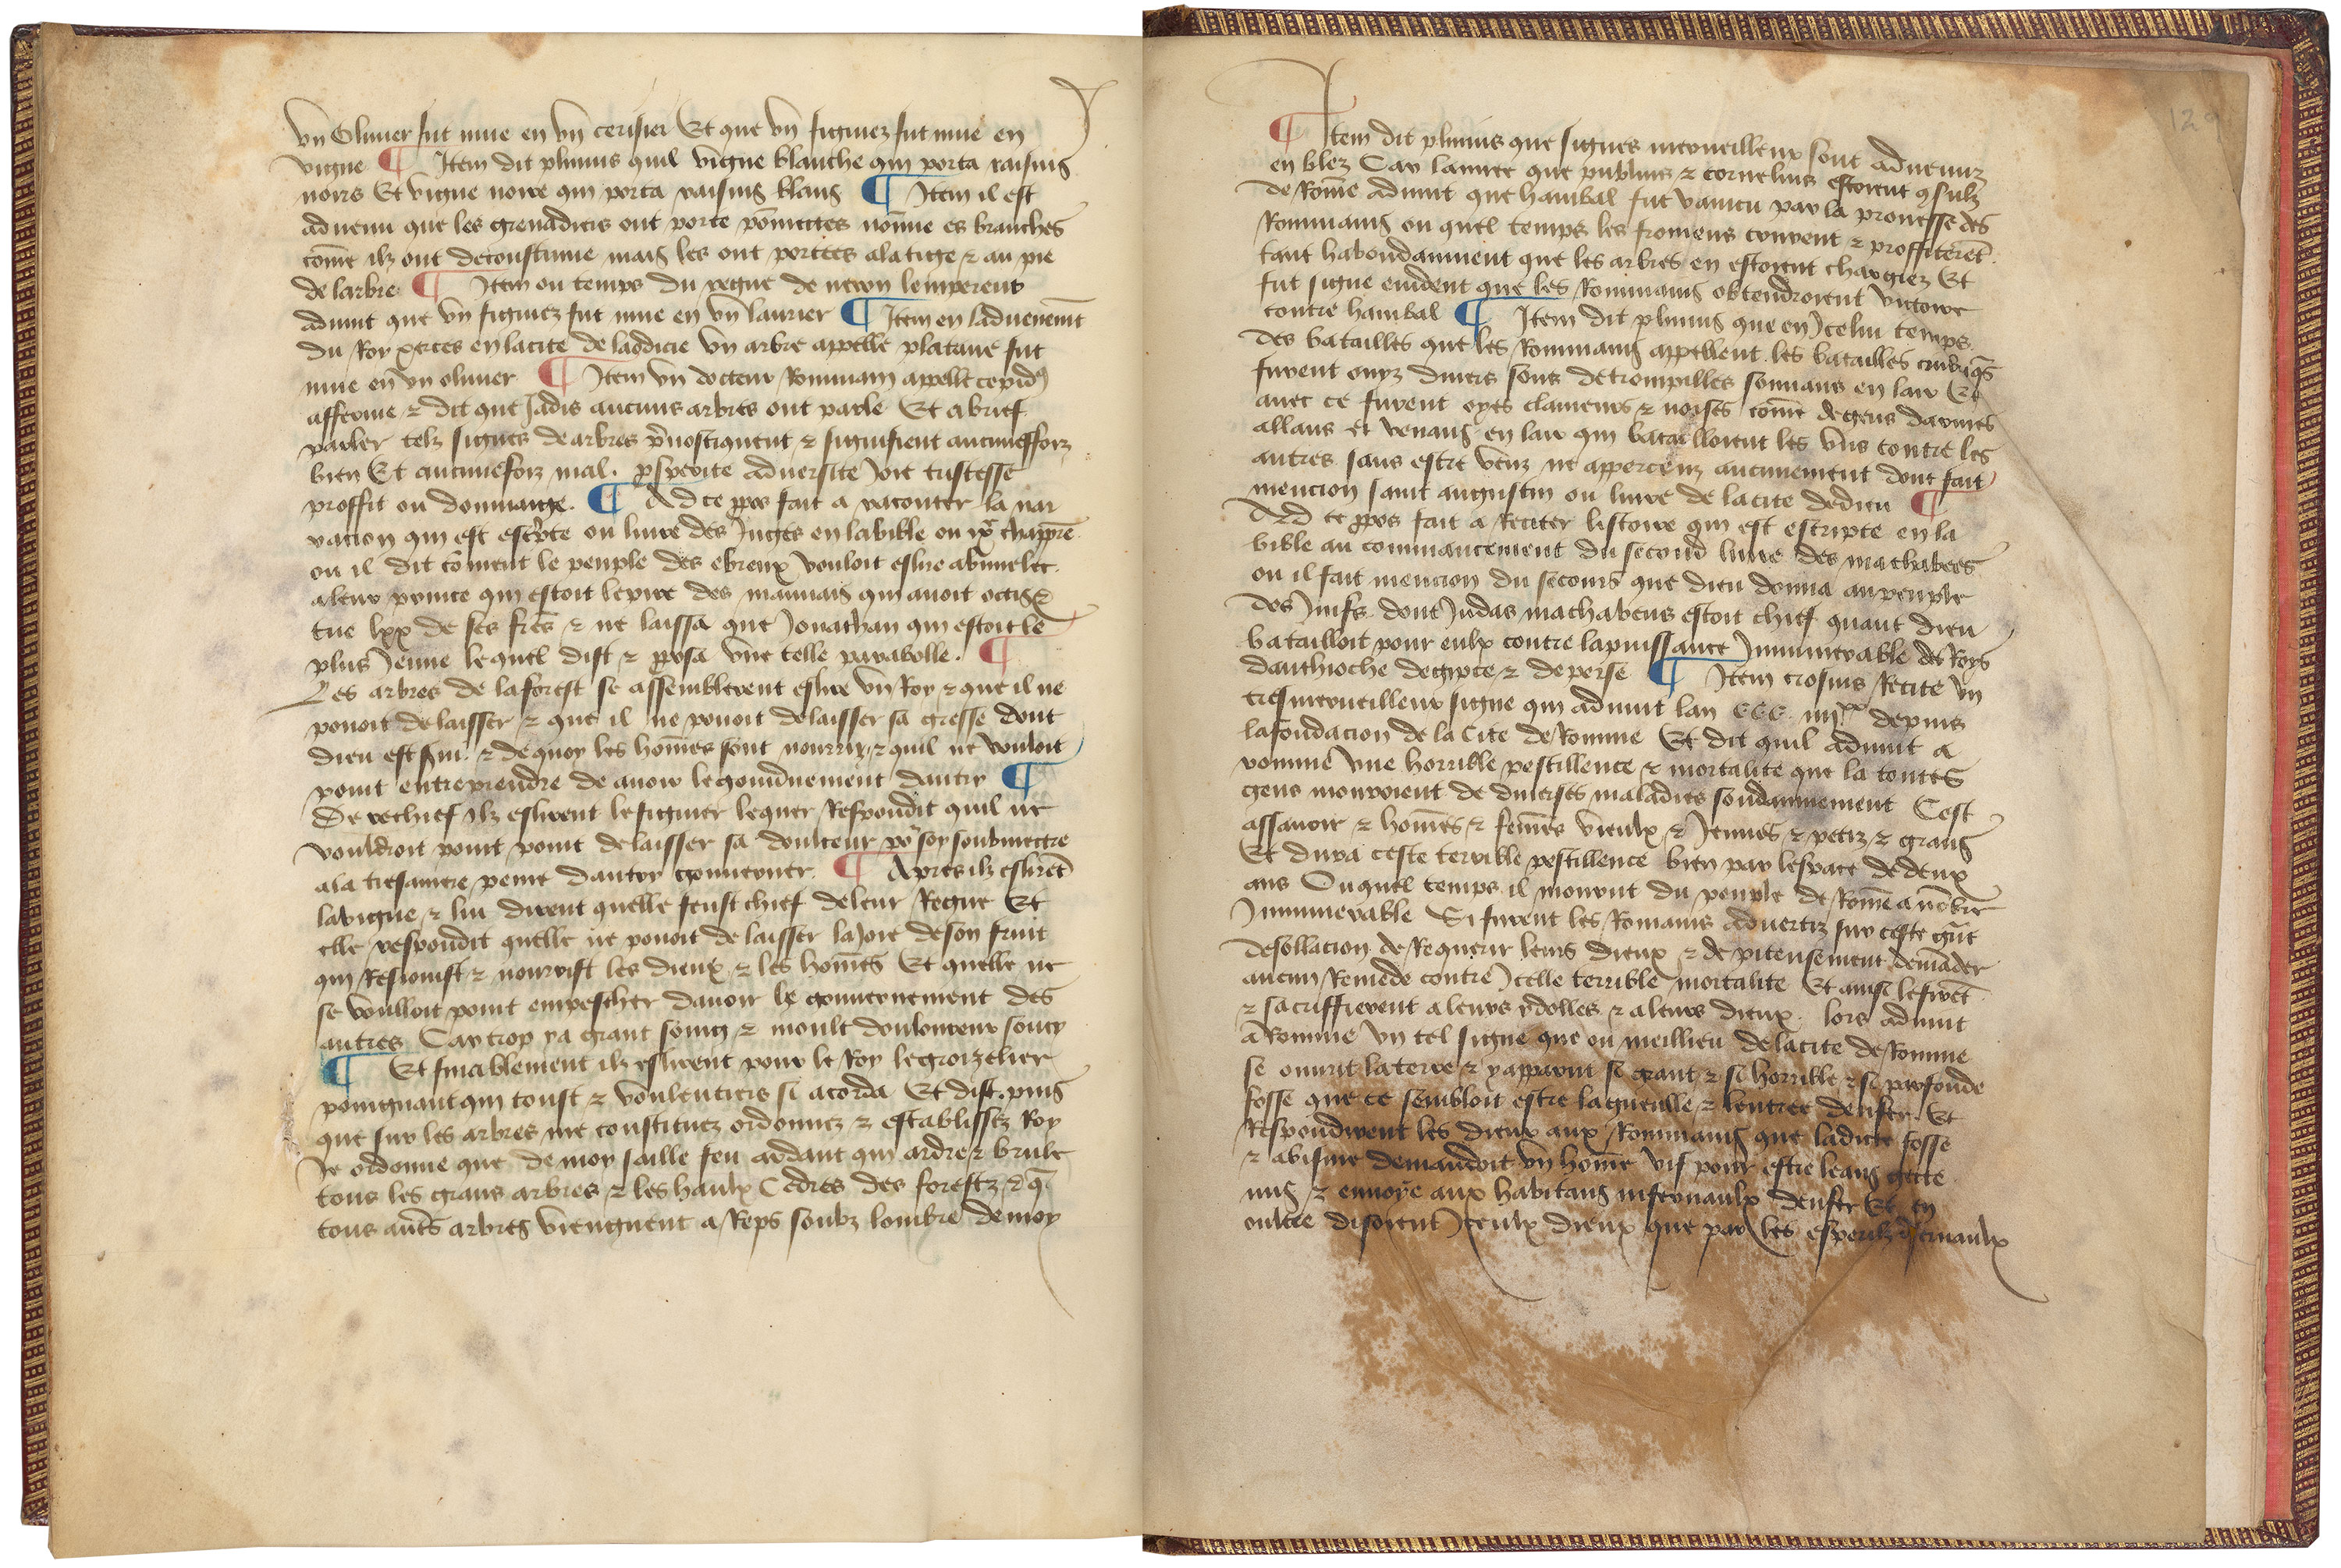 vn Oliuier fut mue en vn cerisier Et que vn figuiez fut mue en
vigne ¶ Item dit plinius quil vigne blanche qui porta raisins
noirs Et vigne noire qui porta raisins blans ¶ Item il est
aduenu que les grenadiers ont porte pōmettes nōmie es branches
cōme ilz ont decoustume mais les ont portees alatige ⁊ au pie
de larbre ¶ Item ou temps du regne de neron lempereur
aduint que vn figuiez fut mue en vn laurier ¶ Item en laduenemt
du Roy xerces en lacite de laodicie vn arbre appelle platane fut
mue en vn oliuier ¶ Item vn docteur Rommain appelle
afferme ⁊ dit que Jadis aucuns arbres ont parle Et abrief
parler telz signes de arbres pnostiquent ⁊ signifient aucuneffoiz
bien Et aucuneffoiz mal. psperite aduersite Joie tristesse
proffit ou dommaige. ¶ Ad ce ppos fait a raconter la nar
racion qui est escpte ou liure des Juges en labible ou ixe chappre
ou il dit cōment le peuple des ebreux vouloit eslire abimelec
aleur prince qui estoit lepire des mauuais qui auoit occis ⁊
tue lxx de ses fres ⁊ ne laissa que Jonathan qui estoit le
plus Jeune lequel dist ⁊ pposa vne telle parabolle. ¶
Les arbres de laforest se assemblerent eslire vn Roy ⁊ que il ne
pouoit delaisser ⁊ que il ne pouoit delaisser sa gresse dont
dieu est  ⁊ dequoy les hōmes sont nourriz ⁊ quil ne vouloit
point entreprendre de auoir legouuernement dautry ¶
De rechief Ilz eslirent lefiguier lequer Respondit quil ne
vouldroit point point delaisser sa doulceur por soy soubmettre
ala tresamere peine dautry gouuerner. ¶ Apres ilz eslirēt
lavigne ⁊ lui dirent quelle feust chief deleur Regne Et
elle respondit quelle ne pouoit delaisser laJoie deson fruit
qui Resiouist ⁊ nourrist les dieux ⁊ les hōmes Et quelle ne
se voulloit point empescher dauoir le gouuernement des
autres Car trop ya grant soing ⁊ moult douloureux soucy
¶ Et finablement ilz eslirent pour le Roy legroizelier
poingnant qui toust ⁊ voulentiers si acorda Et dist. puis
que sur les arbres me constituez ordonnez ⁊ establissez Roy
Je ordonne que de moy saille feu ardant qui ardre ⁊ brule
tous les grans arbres ⁊ les haulx Cedres des forestz ⁊ q̄
tous aūts arbres viengnent a Reps soubz lombre demoy
129
¶ Item dit plinius que signes merueilleux sont aduenuz
en blez Car lannee que publius ⁊ cornelius estoient ꝯsulz
de Rōme aduint que hanibal fut vaincu par la prouesse des
Rommains ou quel temps les fromens  ⁊ proffiterēt
tant habondamment que les arbres en estoient chargiez Et
fut signe euident que les Rommains obtendroient victoire
contre hanibal ¶ Item dit plinius que en Jcelui temps
des batailles que les Rommains appellent les batailles
furent oyz diuers sons detrompilles sonnans en lair Et
auec ce furent oyes clameurs ⁊ noises cōme degens darmes
allans et venans en lair qui batailloient les vns contre les
autres sans estre veuz ne apperceuz aucunement dont fait
mencion saint augustin ou liure de lacite dedieu ¶
Ad ce ppos fait a Reciter listoire qui est escripte en la
bible au commancement du second liure des machabees
ou il fait mencion du secours que dieu donna aupeuple
des Juifs dont Judas machabeus estoit chief quant dieu
batailloit pour eulx contre lapuissance Jnnumerable des Roys
danthioche degipte ⁊ deperse ¶ Item crosius Recite vn
tresmerueilleux signe qui aduint lan CCC. iiijxx depuis
lafondacion de la Cite de Romme Et dit quil aduint a
romme vne horrible pestillence ⁊ mortalite que la toutes
gens mouroient de diuerses maladies soudainnement Cest
assauoir ⁊ hōmes ⁊ femēs vieulx ⁊ Jeunes ⁊ petiz ⁊ grans
Et dura ceste terrible pestillence bien par lespace dedeux
ans Ouquel temps il mourut du peuple de Rōme a nōbre
Jnnumerable Si furent les Romains aduertiz sur ceste gūt
desollacion de Requerir leurs dieux ⁊ de piteusement demāder
aucun Remede contre Jcelle terrible mortalite Et ainsi lefirēt
⁊ sacriffierent aleurs ydolles ⁊ aleurs dieux. lors aduint
a Romme vn tel signe que ou meillieu delacite de Romme
se ouurit laterre ⁊ yapparut si grant ⁊ si horrible ⁊ si parfonde
fosse que ce sembloit estre lagueulle ⁊ lentree denfer Et
Respondirent les dieux aux Rommains que ladicte fosse
⁊ abisme demandoit vn hōme vif pour estre leans gette
mis ⁊ enuoye aux habitans infernaulx denfer Et en
oultre disoient Jceulx dieux que par les esperilz